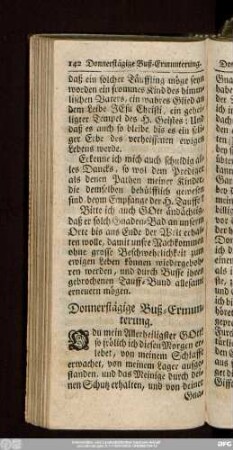 142 Donnerstägige Buß-Ermunterung.
daß ein solcher Täuffling möge seyn
worden ein frommes Kind des himm-
lischen Vaters, ein wahres Glied an
dem Leibe JEsu Christi, ein gehei-
ligter Tempel des H. Geistes: Und
daß es auch so bleibe bis es ein seli-
ger Erbe des verheissenen ewigen
Lebens werde.
Erkenne ich mich auch schuldig al-
les Dancks, so wol dem Prediger
als denen Pathen meiner Kinder,
die demselben behülfflich gewesen
sind beym Empfange der H. Tauffe.
Bitte ich auch GOtt andächtig,
daß er solch Gnaden-Bad an unserm
Orte bis ans Ende der Welt erhal-
ten wolle, damit unsre Nachkommen
ohne grosse Beschwerlichkeit zum
ewigen Leben können wiedergeboh-
ren werden, und durch Busse ihren
gebrochenen Tauff-Bund allesamt
erneuern mögen.
Donnerstägige Buß-Ermun-
terung.
O du mein Allerheiligster GOtt,
so frölich ich diesen Morgen er-
lebet, von meinem Schlaffe
erwachet, von meinem Lager aufge-
standen, und das Meinige durch dei-
nen Schutz erhalten, und von deiner
Gna-